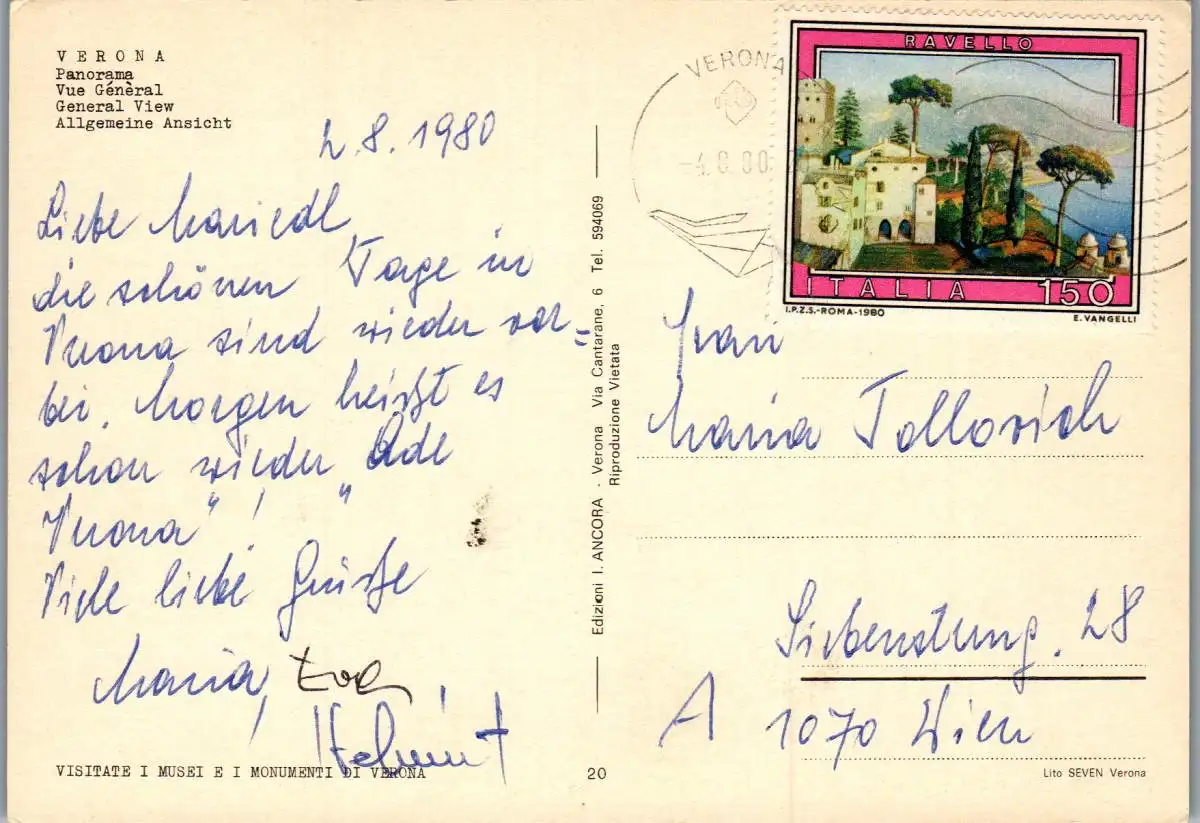 VERONA
Panorama
Vue Génèral
General View
Allgemeine Ansicht
2.8.1980
Liebe Mariedl,
die schönen Tage in
Verona sind wieder vor-
bei. Morgen heißt es
schon wieder „Ade
Verona"!
Viele liebe Grüße
Maria,
Helmut
VISITATE I MUSEI E I MONUMENTI DI VERONA
20
Edizioni I. ANCORA - Verona Via Cantarane, 6 Tel. 594069
Riproduzione Vietata
VERONA
-4.8.80
RAVELLO
ITALIA 150
I.P.Z.S.-ROMA-1980
E. VANGELLI
Frau
Maria Tollovich
Siebensterng. 28
A 1070 Wien
Lito SEVEN Verona